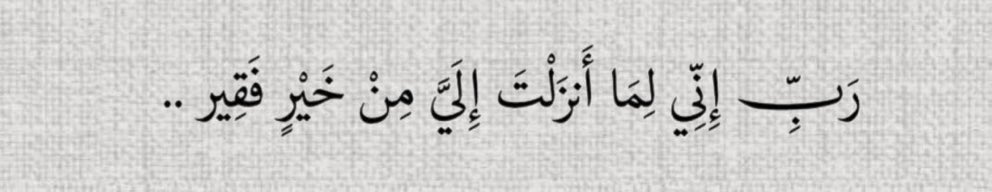 رَبِّ إِنِّي لِمَا أَنزَلْتَ إِلَيَّ مِنْ خَيْرٍ فَقِير ..